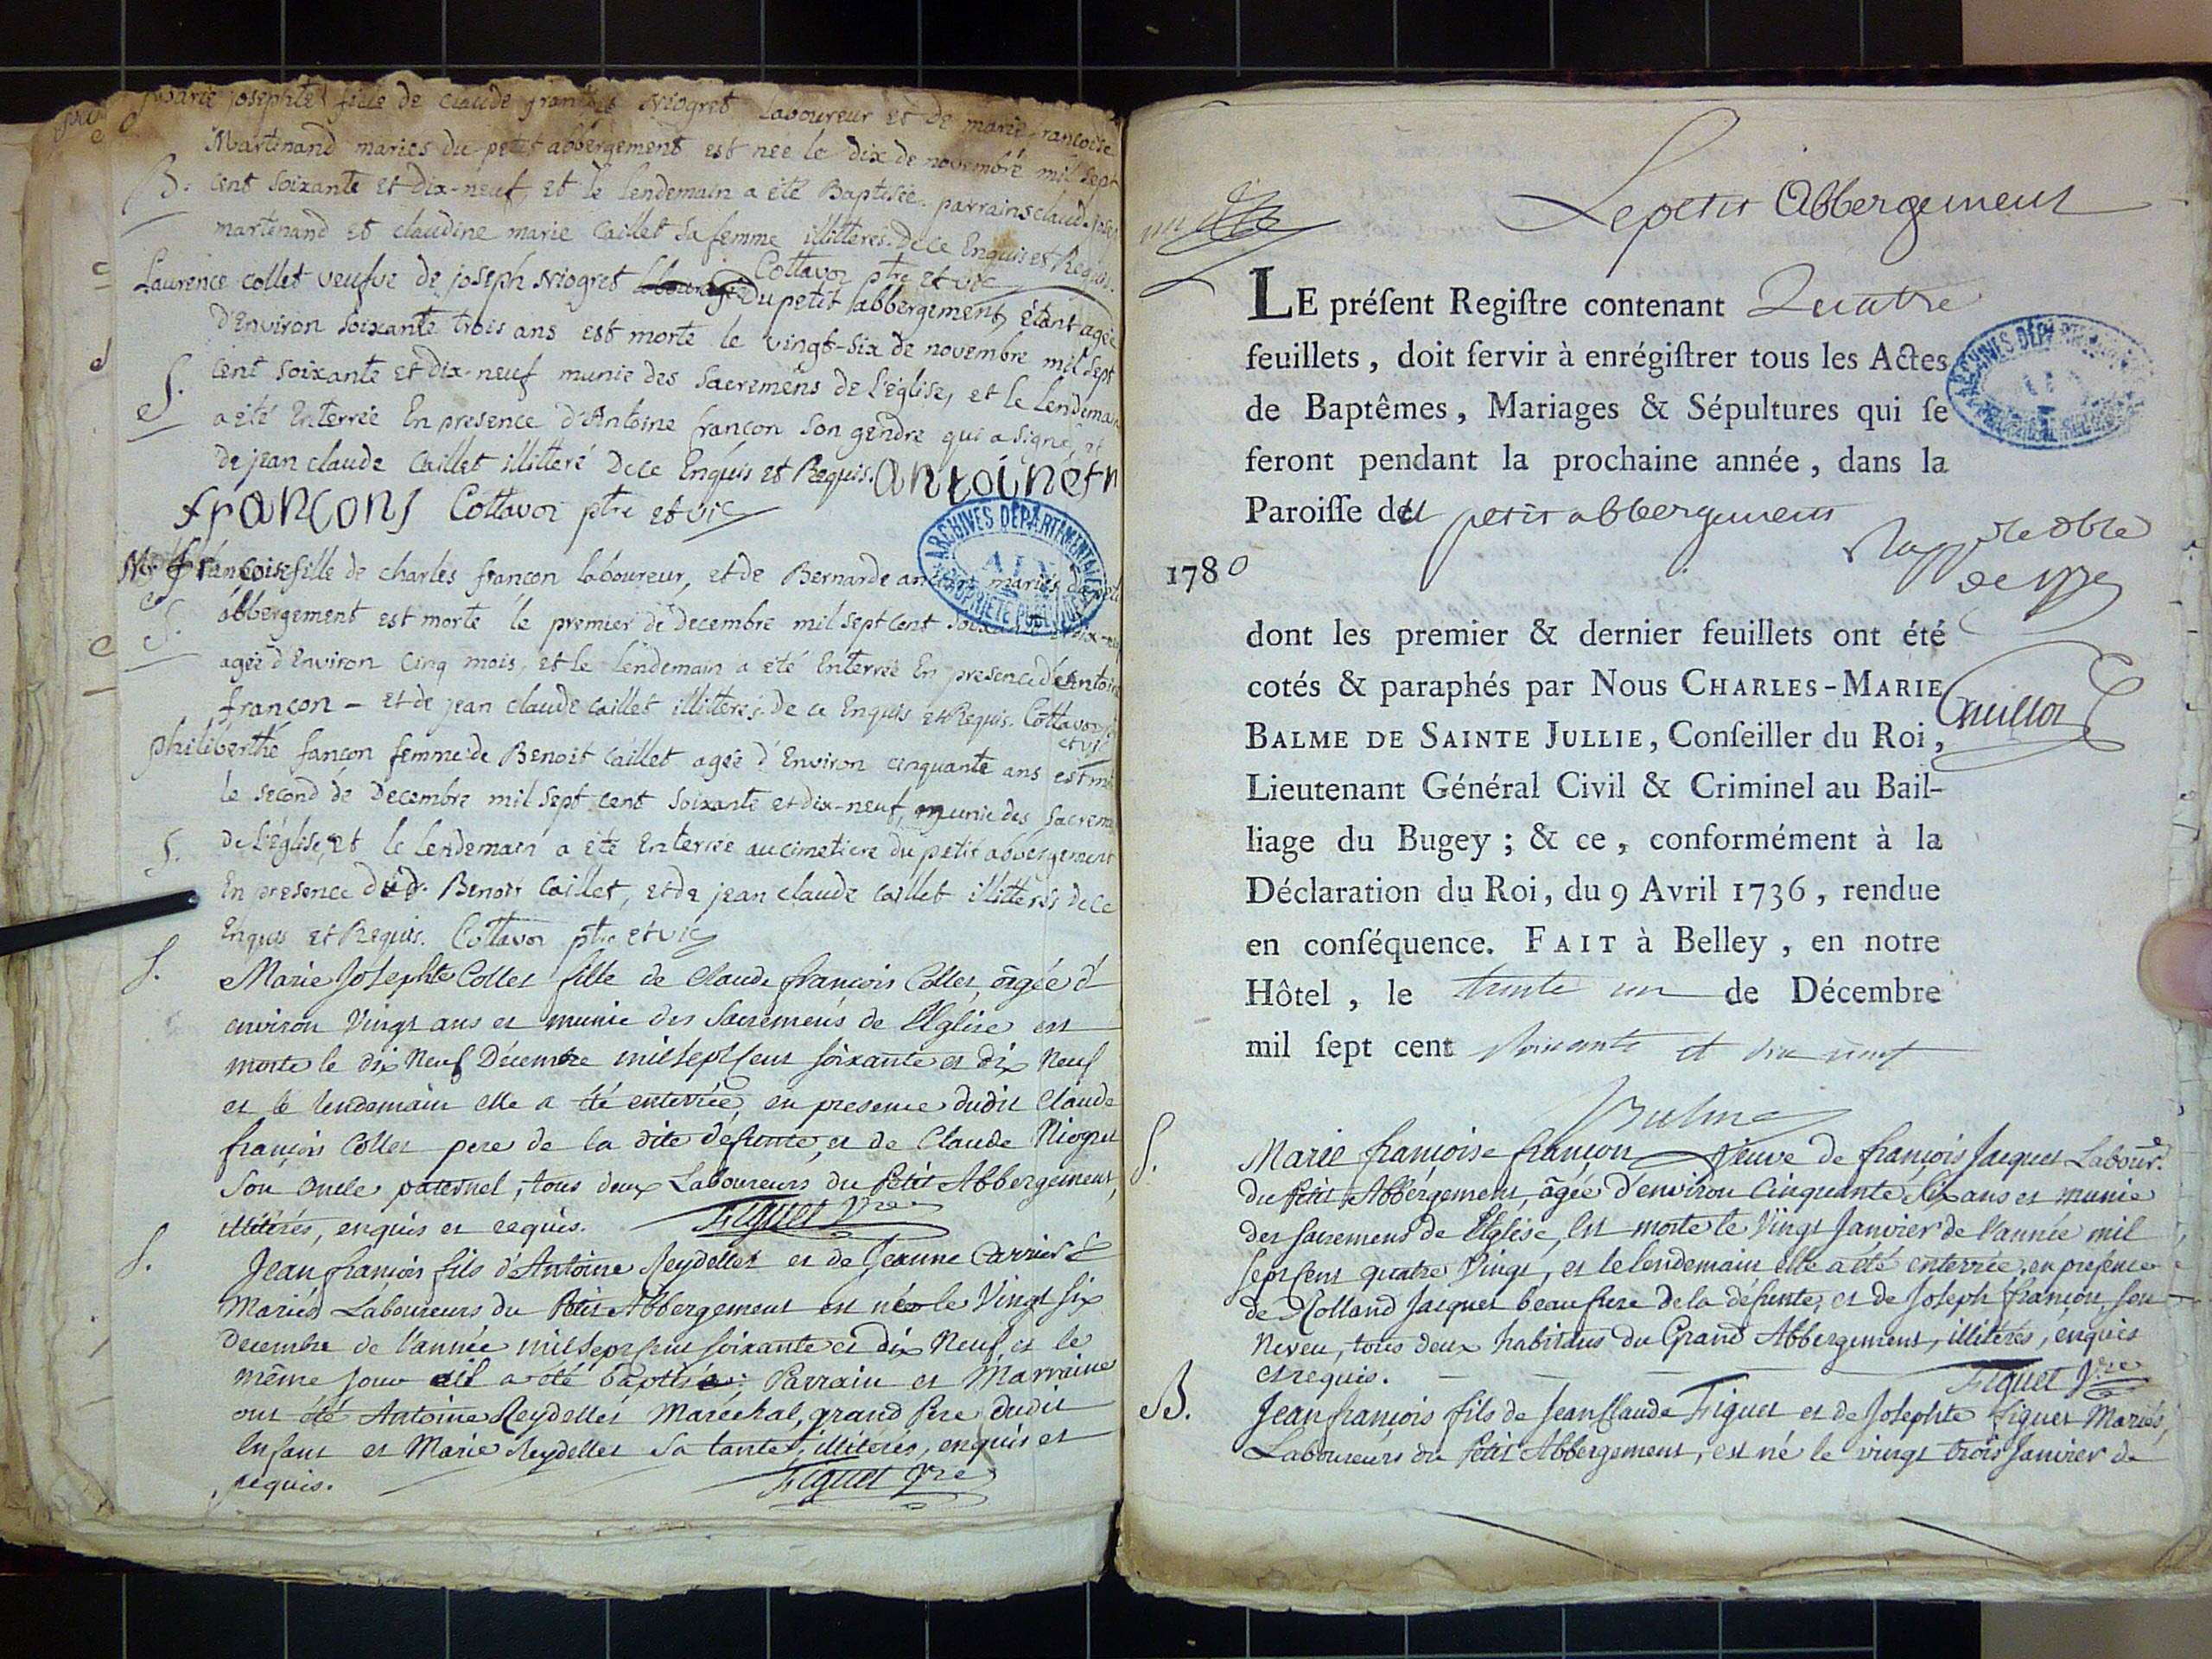 Marie josephte fille de claude françois Niogret Laboureur et de marie françoise
Martinand maries du petit abbergement est neé le dix de novembre mil sept
B. cent soixante et dix-neuf, et le lendemain a été Baptisée. parrains claud. josep
martinand et claudine marie Caillet sa femme illitterés. De ce Enquis et Requis.
Cottavoz ptre et vic
Laurence collet veufve de joseph Niogret Du petit abbergement, étant ageé
D'Environ soixante trois ans est morte le vingt-six de novembre mil sept
S. cent soixante et dix-neuf munie des Sacremens de l'église, et le lendemain
a été Enterreé En presence d'Antoine françon son gendre qui a signé, et
De jean claude Caillet illitteré De ce Enquis et Requis. antoine fr
françons Cottavoz ptre et vic
françoise fille de charles françon laboureur, et de Bernarde mariés
S. abbergement est morte le premier de decembre mil sept cent
ageé d'Environ cinq mois, et le lendemain a été Enterreé En presence d'Antoine
françon – et de jean claude Caillet illitterés. De ce Enquis et Requis. Cottavoz
et vic
philiberthe fançon femme de Benoit Caillet ageé d'Environ cinquante ans est
le second de Decembre mil sept cent soixante et dix-neuf, munie des sacrem
S. De l'église, et le lendemain a été Enterreé au cimetiere du petit abbergement
En presence dud. Benoit Caillet, et de jean claude Caillet illitterés de ce
Enquis et Requis. Cottavoz ptre et vic
S. Marie Josephte Collet fille de Claude françois Collet, âgée d'
environ Vingt ans et munie des Sacremens de l'Eglise est
morte le dix Neuf Décembre mil sept cent soixante et dix Neuf
et le lendemain elle a été enterrée, en presence dudit Claude
françois Collet pere de la dite défunte, et de Claude Niogret
Son Oncle paternel, tous deux Laboureurs du Petit Abbergement,
illitérés, enquis et requis. Figuet Vre
S. Jean françois fils d'Antoine Reydellet et de Jeanne Carrier
Mariés Laboureurs du Petit Abbergement est né le Vingt six
Decembre de l'année mil sept cent soixante et dix Neuf et le
même jour il a été baptisé; Parrain et Marraine
ont été Antoine Reydellet Maréchal, grand Pere dudit
Enfant et Marie Reydellet Sa tante, illitérés, enquis et
requis. Figuet Vre
Le petit Abbergement
LE préſent Regiſtre contenant Quatre
feuillets, doit ſervir à enrégiſtrer tous les Actes
de Baptêmes, Mariages & Sépultures qui ſe
feront pendant la prochaine année, dans la
Paroiſſe du petit abbergement
1780
dont les premier & dernier feuillets ont été
cotés & paraphés par Nous CHARLES-MARIE
BALME DE SAINTE JULLIE, Conſeiller du Roi,
Lieutenant Général Civil & Criminel au Bail-
liage du Bugey ; & ce, conformément à la
Déclaration du Roi, du 9 Avril 1736, rendue
en conſéquence. FAIT à Belley, en notre
Hôtel, le trente un de Décembre
mil ſept cent soixante et dix neuf
Balme
S. Marie françoise françon Veuve de françois Jacquet Labour.
du Petit Abbergement, âgée d'environ Cinquante six ans et munie
des sacremens de l'Eglise, est morte le Vingt Janvier de l'année mil
sept cent quatre Vingt, et le lendemain elle a été enterrée, en presence
de Rolland Jacquet beau frere de la défunte, et de Joseph françon, son
Neveu, tous deux habitans du Grand Abbergement, illitérés, enquis
et requis. Figuet Vre
B. Jean françois fils de Jean Claude Figuet et de Josephte Figuet Mariés,
Laboureurs du Petit Abbergement, est né le vingt trois Janvier de
ARCHIVES DÉPARTEMENTALES
AIN
PROPRIÉTÉ PUBLIQUE